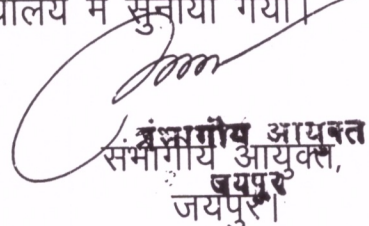 में सुनाया गया।
संभागीय आयुक्त
संभागीय आयुक्त,
जयपुर
जयपुर।